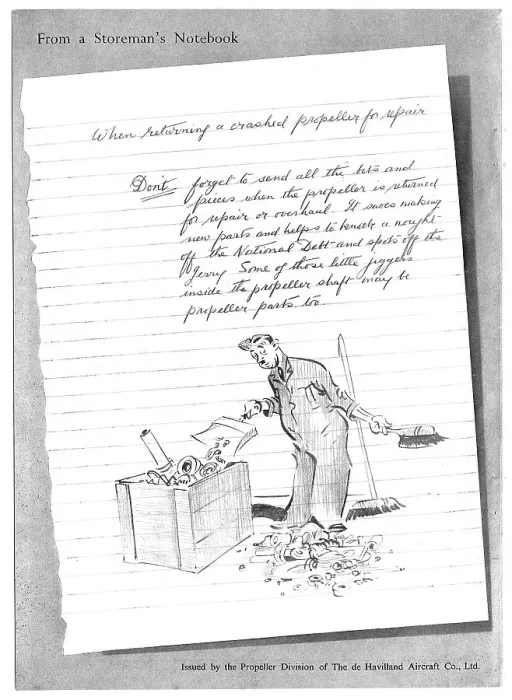 From a Storeman's Notebook
When returning a crashed propeller for repair
Don't forget to send all the bits and
pieces when the propeller is returned
for repair or overhaul. It saves making
new parts and helps to knock a nought
off the National Debt and spots off the
Jerry. Some of those little jiggers
inside the propeller shaft may be
propeller parts too.
Issued by the Propeller Division of The de Havilland Aircraft Co., Ltd.